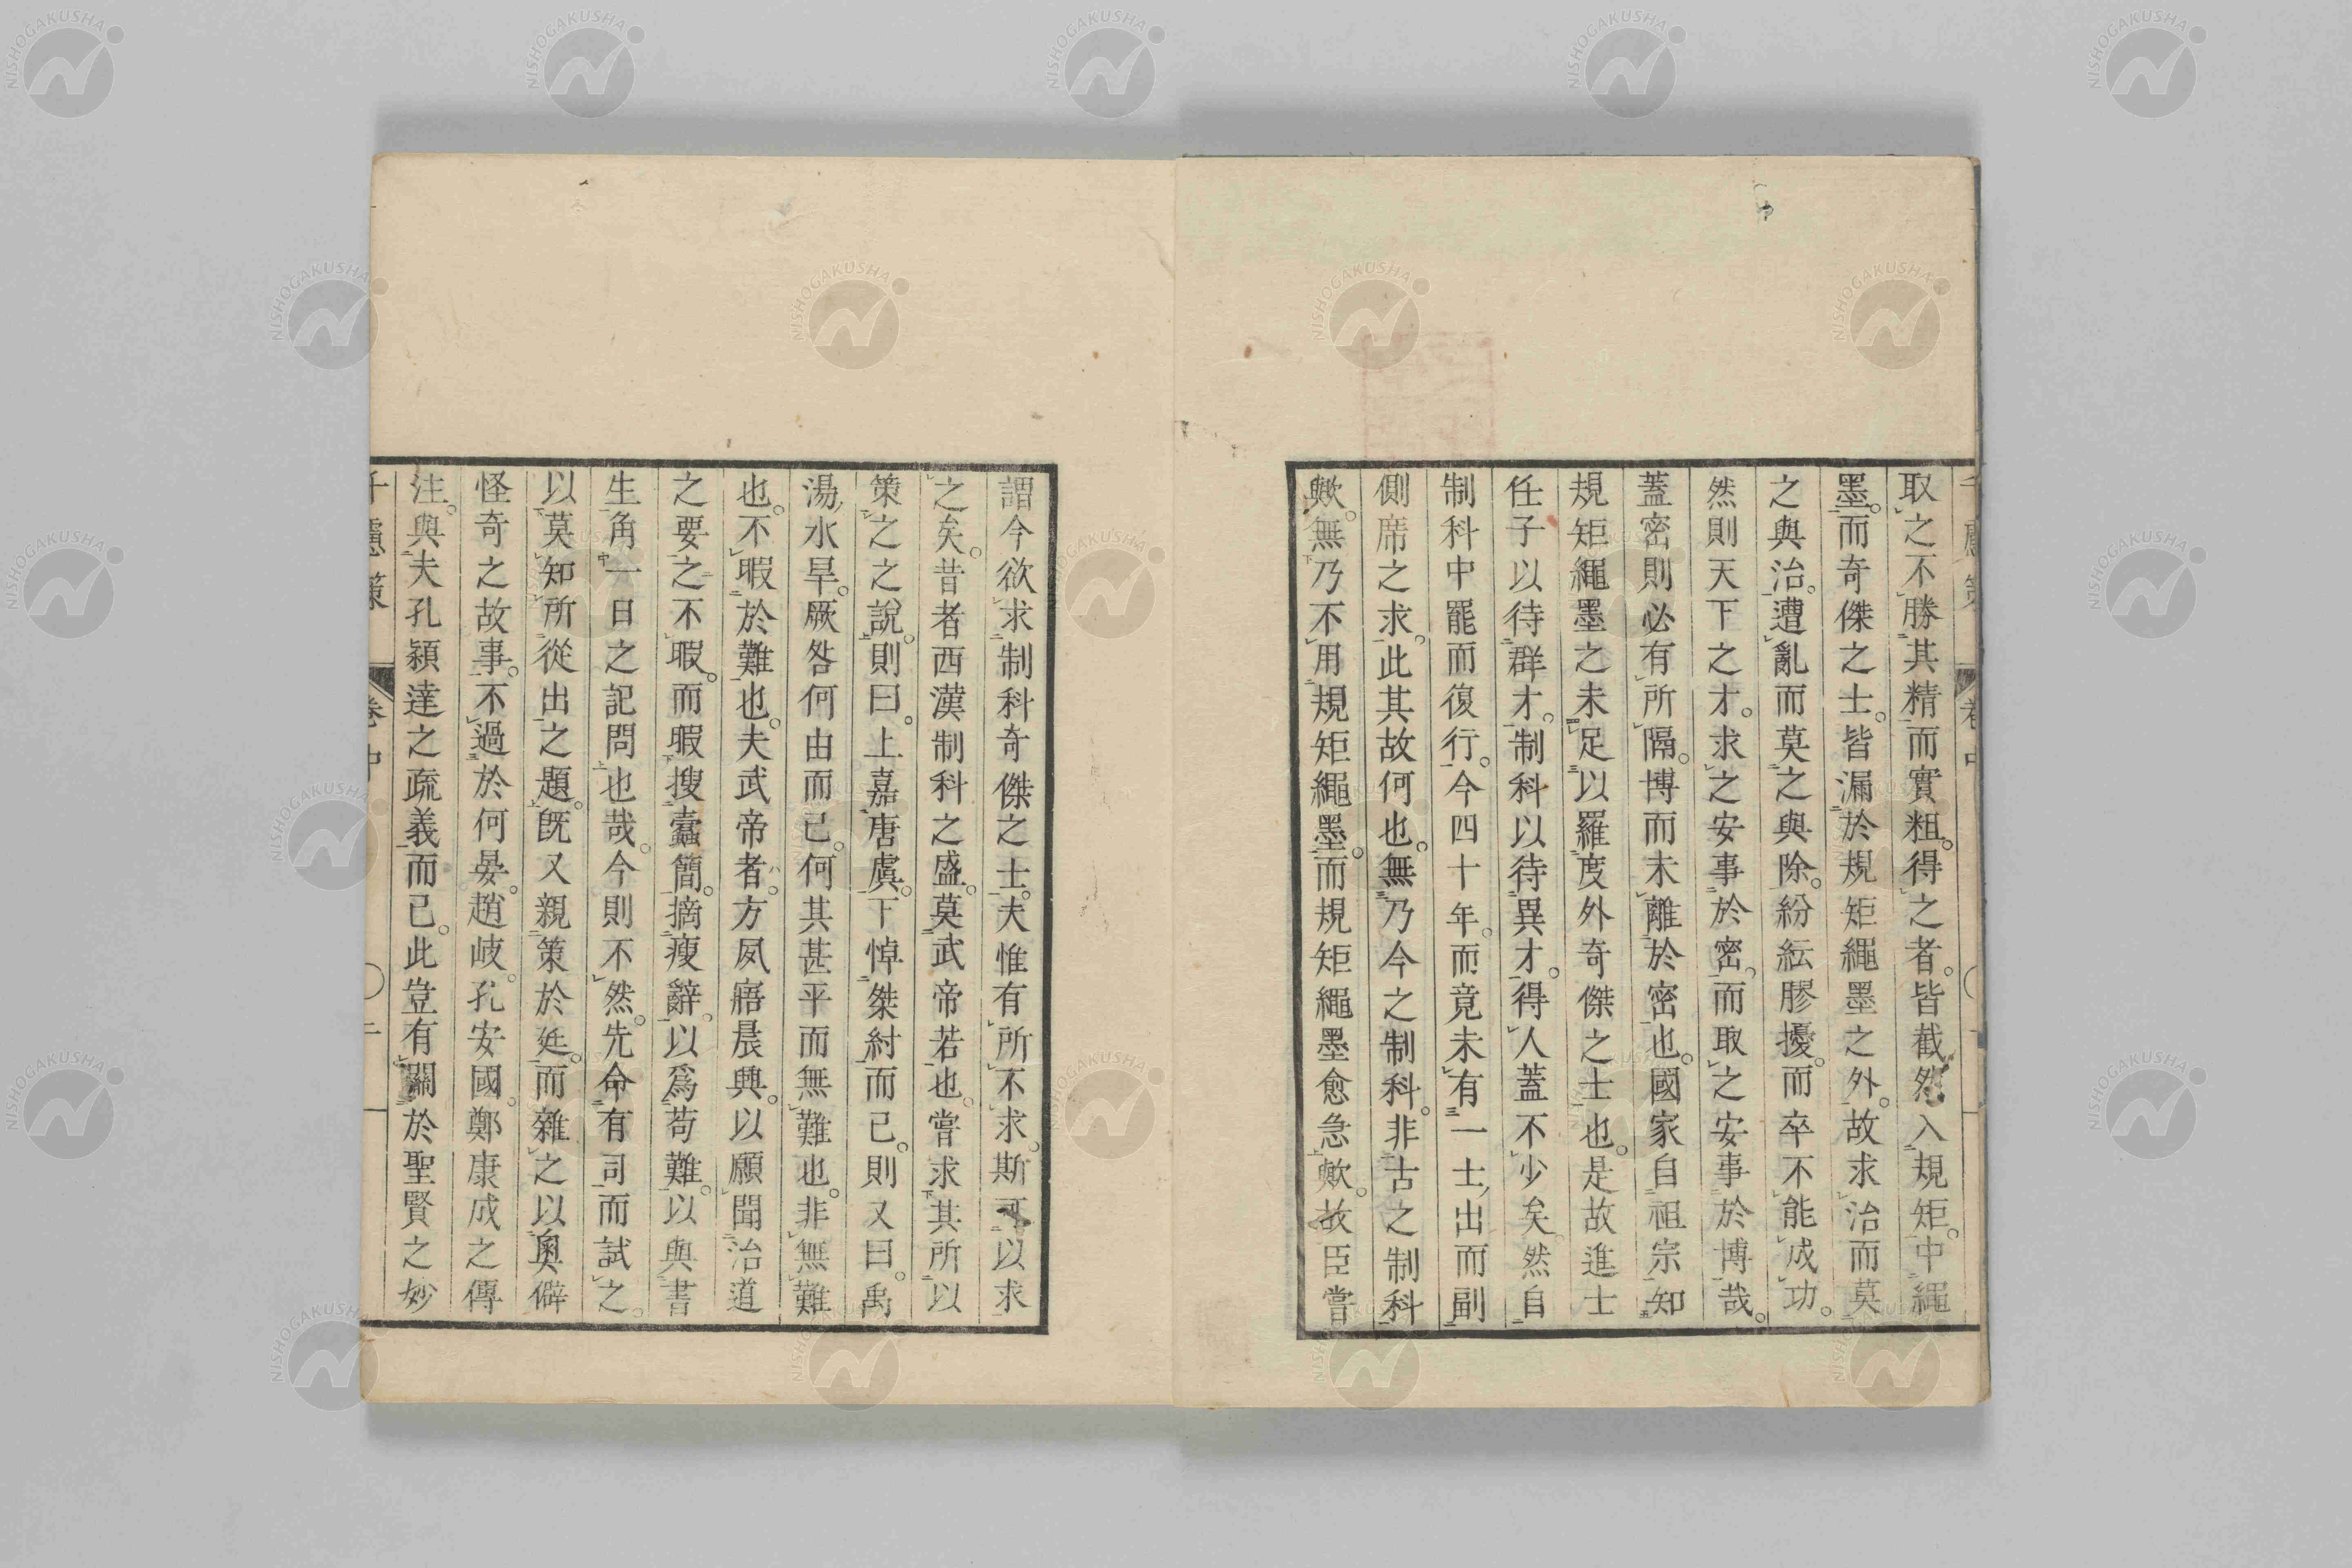 取之不勝其精而實粗。得之者。皆截然入規矩。中繩
墨。而奇傑之士。皆漏於規矩繩墨之外。故求治而莫
之與治。遭亂而莫之與除。紛紜膠擾。而卒不能成功。
然則天下之才。求之安事於密。而取之安事於博哉。
蓋密則必有所隔。博而未離於密也。國家自祖宗知
規矩繩墨之未足以羅度外奇傑之士也。是故進士
任子以待群才。制科以待異才。得人蓋不少矣然自
制科中罷而復行。今四十年。而竟未有一士出而副
側席之求。此其故何也。無乃今之制科。非古之制科
歟。無乃不用規矩繩墨。而規矩繩墨愈急歟。故臣嘗
謂今欲求制科奇傑之士。夫惟有所不求。斯可以求
之矣。昔者西漢制科之盛。莫武帝若也。嘗求其所以
策之之說。則曰。上嘉唐虞。下悼桀紂而已。則又曰。禹
湯水旱。厥咎何由而已。何其甚平而無難也。非無難
也。不暇於難也。夫武帝者。方夙寤晨興。以願聞治道
之要之不暇。而暇搜蠹簡。摘瘦辭。以爲苟難。以與書
生角一日之記問也哉。今則不然。先命有司而試之。
以莫知所從出之題。既又親策於廷。而雜之以奧僻
怪奇之故事。不過於何晏。趙岐。孔安國。鄭康成之傳
注。與夫孔穎達之疏義而已。此豈有關於聖賢之妙
千慮策 卷中
NISHOGAKUSHA